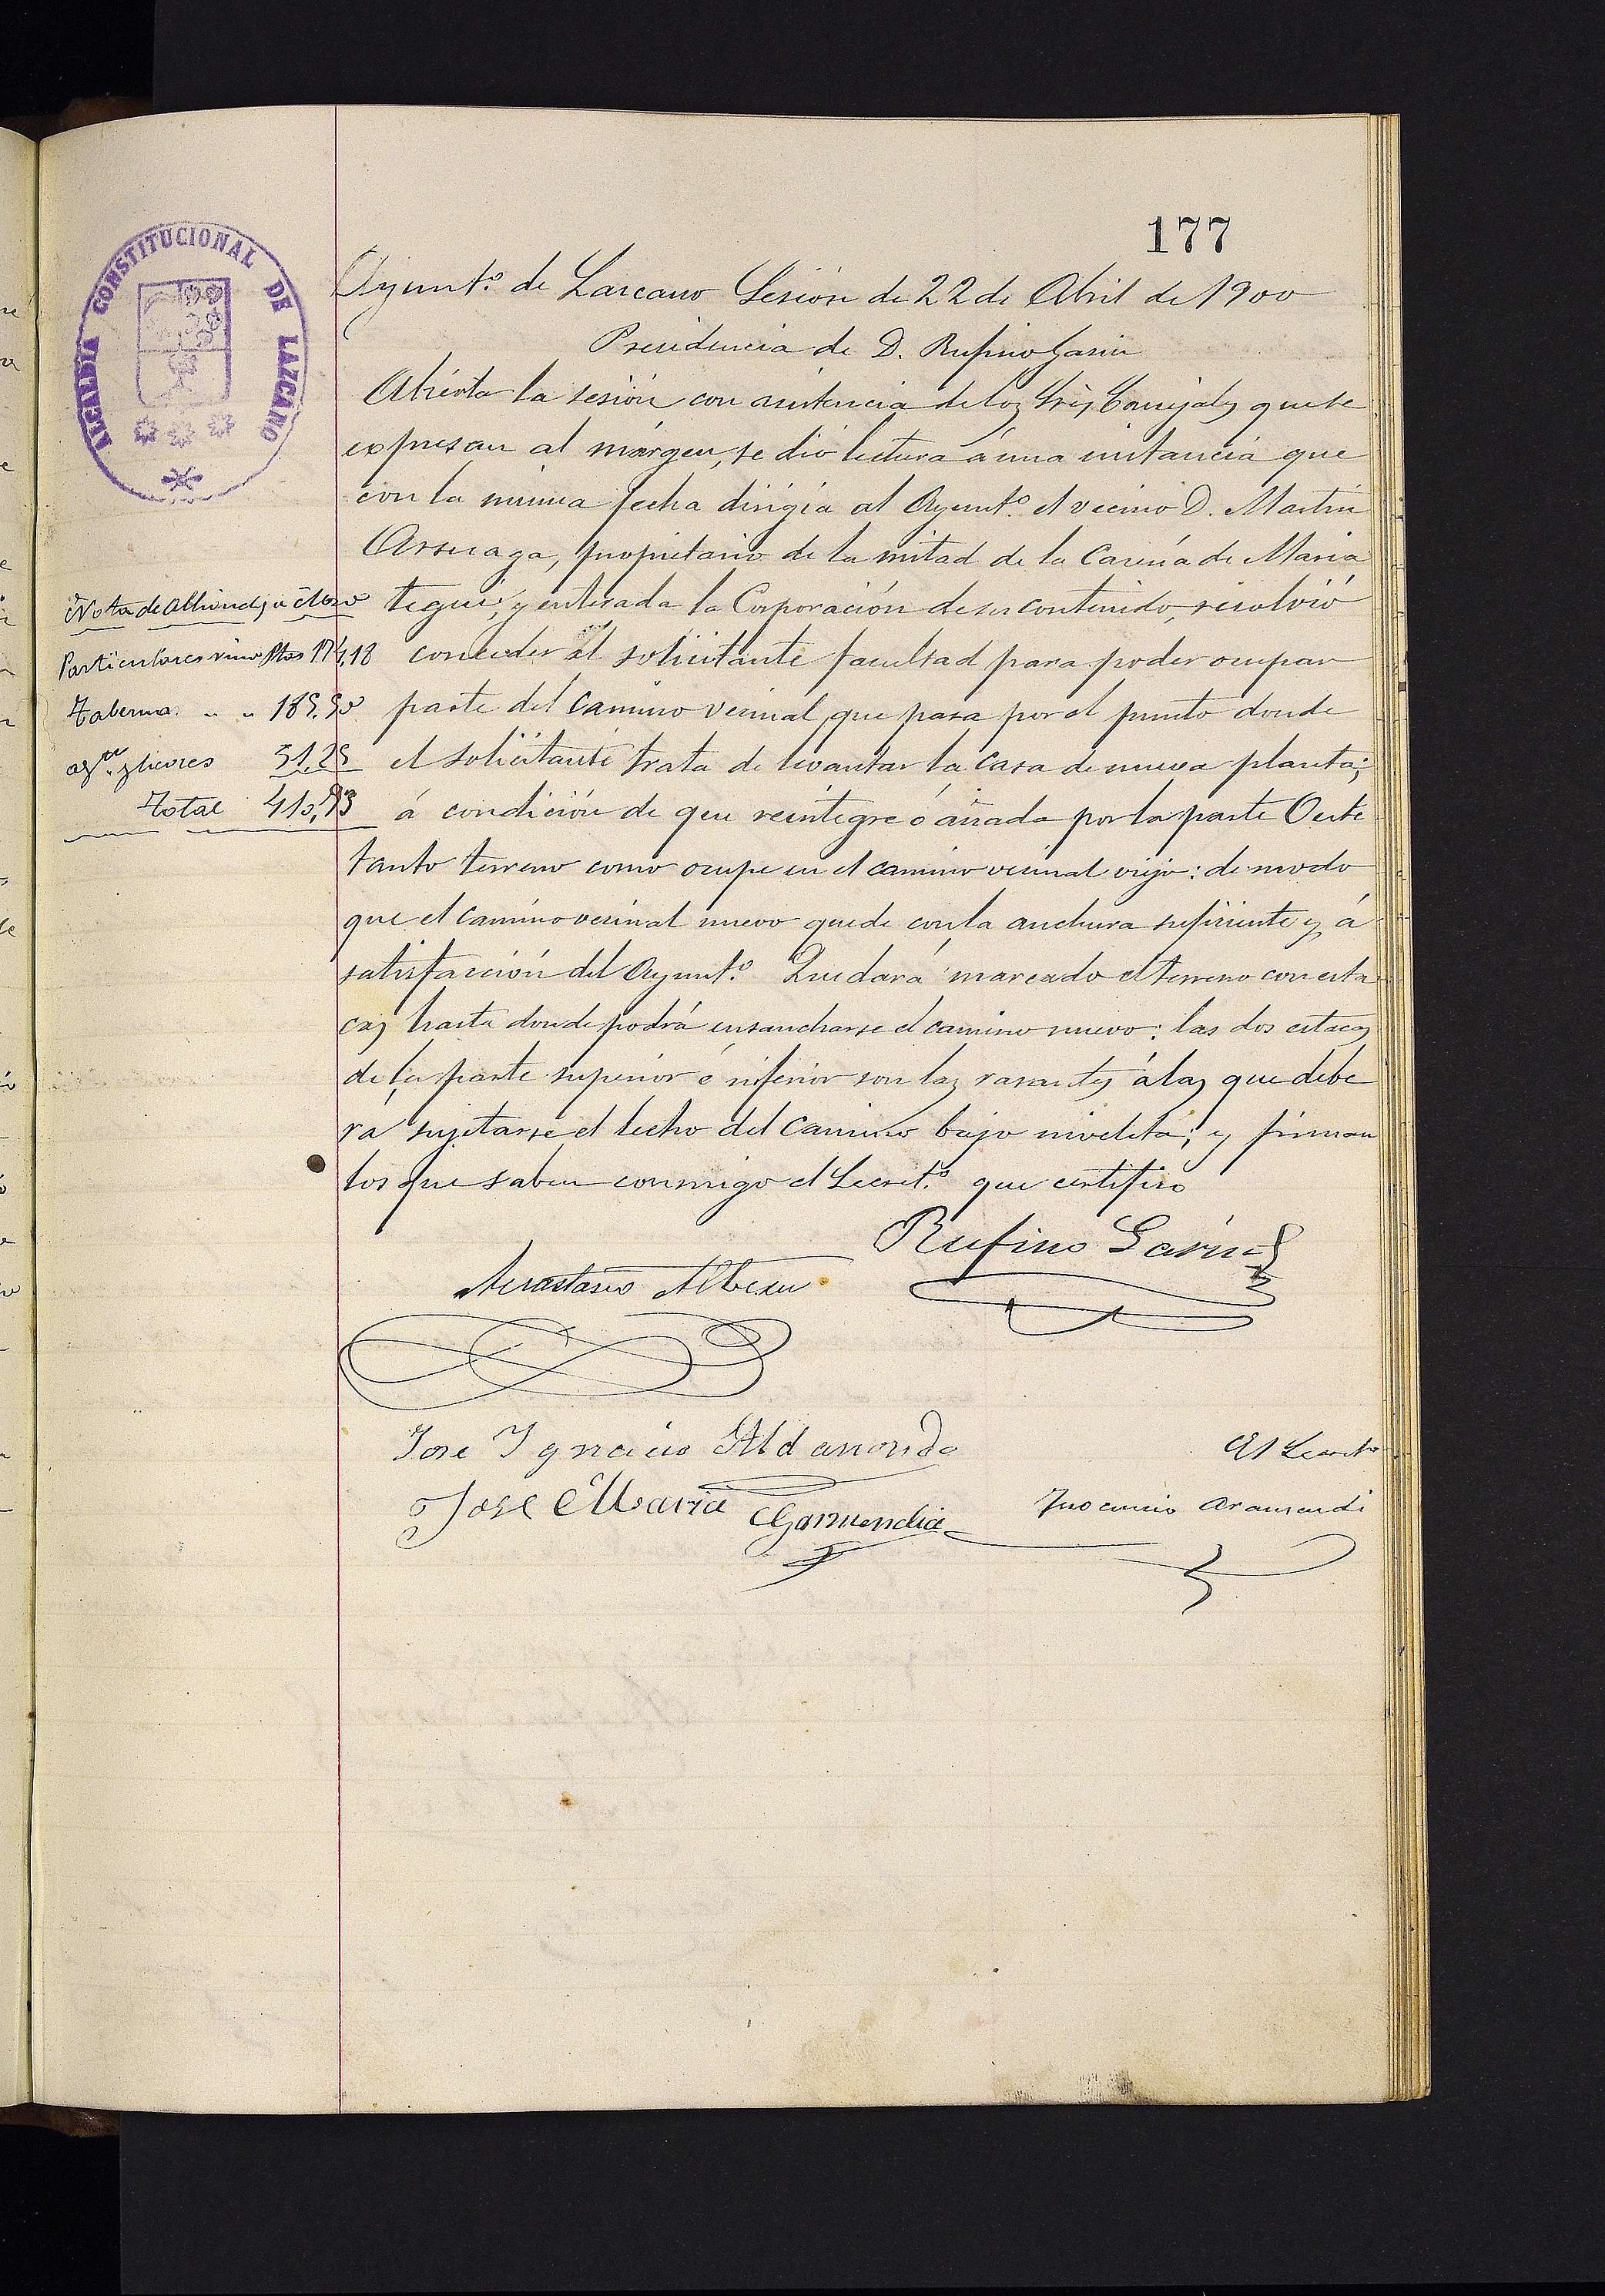 177
ALCALDÍA CONSTITUCIONAL DE LAZCANO
Ayunt.º de Lazcano Sesión de 22 de Abril de 1900
Presidencia de D. Rufino Garin
Abierta la sesión con asistencia de los Srs Concejales que se
expresan al márgen, se dió lectura á una instancia que
con la misma fecha dirigia al Ayunt.º el vecino D. Martin
Arsuaga, propietario de la mitad de la Caseria de Maria
tegui, y enterada la Corporación de su contenido, resolvió
conceder al solicitante facultad para poder ocupar
parte del camino vecinal, que pasa por el punto donde
el solicitante trata de levantar la casa de nueva planta;
á condición de que reintegre ó añada por la parte Oeste
tanto terreno como ocupe en el camino vecinal viejo: de modo
que el camino vecinal nuevo quede con la anchura suficiente y á
satisfacción del Ayunt.º Quedará marcado el terreno con esta
cas hasta donde podrá ensancharse el camino nuevo: las dos estacas
de la parte superior é inferior son las rasantes á las que debe
rá sujetarse el lecho del camino bajo niveleta; y firman
los que saben conmigo el Secret.º que certifico
Nota de Alhondiga Marzo
Particulares vino Ptas 174,18
Taberna " " 185,50
y licores 51,25
Total 410,93
Rufino Garin
Anastasio Alberdi
Jose Ignacio Aldanondo
El Secret.º
Jose Maria Garmendia
Inocencio Aramendi